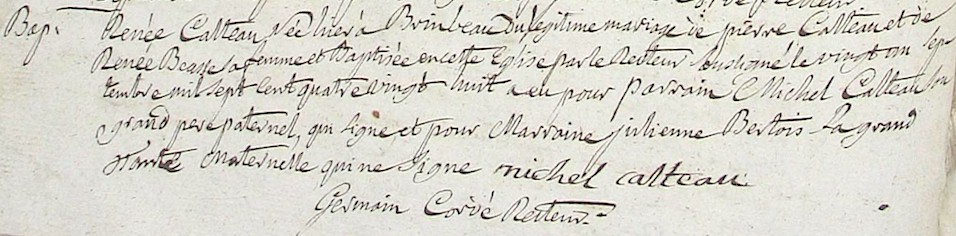 Bap. Renée Catteau née hier à Brinbeau du légitime mariage de pierre Catteau et de
Renée Beasse sa femme et Baptisée en cette Eglise par le Recteur soussigné le vingt un sep-
tembre mil sept cent quatre vingt huit a eu pour parrain Michel Catteau son
grand pere paternel, qui signe et pour Marraine julienne Bertois sa grand
tante maternelle qui ne signe michel catteau
Germain Corvé Recteur